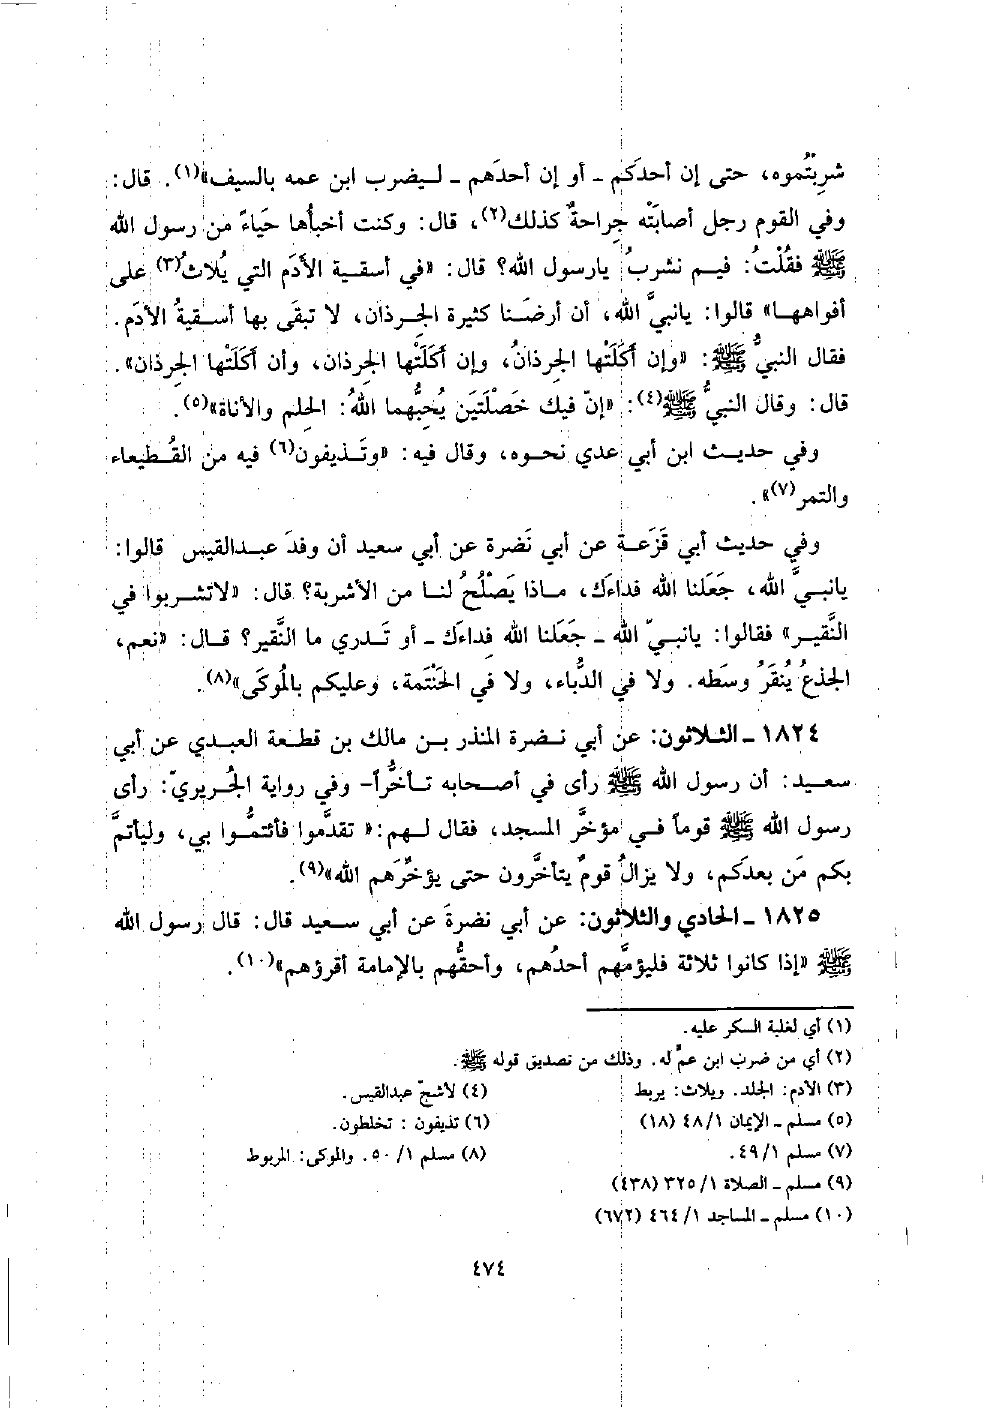 شربتُموه، حتى إن أحدَكم ـ أو إن أحدَهم ـ ليضرب ابن عمه بالسيف»(١). قال:
وفي القوم رجل أصابَتْه جِراحةٌ كذلك(٢)، قال: وكنت أخبأُها حَياءً من رسول الله
ﷺ فقُلْتُ: فيم نشربُ يارسول الله؟ قال: «في أسقية الأدَم التي يُلاثُ(٣) على
أفواهها» قالوا: يانبيَّ الله، أن أرضَنا كثيرة الجِرذان، لا تبقَى بها أسقيةُ الأدَم.
فقال النبيُّ ﷺ: «وإن أكَلَتْها الجِرذانُ، وإن أكَلَتْها الجِرذان، وأن أكَلَتْها الجِرذان».
قال: وقال النبيُّ ﷺ(٤): «إنّ فيك خَصْلَتَين يُحِبُّهما اللهُ: الحِلم والأناة»(٥).
وفي حديث ابن أبي عدي نحوه، وقال فيه: «وتَذيفون(٦) فيه من القُطيعاء
والتمر(٧)».
وفي حديث أبي قَزَعة عن أبي نَضرة عن أبي سعيد أن وفدَ عبدالقيس قالوا:
يانبيَّ الله، جَعَلنا الله فداءَك، ماذا يَصْلُحُ لنا من الأشربة؟ قال: «لاتشربوا في
النَّقير» فقالوا: يانبيّ الله ـ جَعَلنا الله فِداءَك ـ أو تَدري ما النَّقير؟ قال: «نعم،
الجذعُ يُنقَرُ وسَطه. ولا في الدُّباء، ولا في الحَنْتَمة، وعليكم بالمُوكَى»(٨).
١٨٢٤ ـ الثلاثون: عن أبي نضرة المنذر بن مالك بن قطعة العبدي عن أبي
سعيد: أن رسول الله ﷺ رأى في أصحابه تأخُّراً- وفي رواية الجُريريّ: رأى
رسول الله ﷺ قوماً في مؤخَّر المسجد، فقال لهم:« تقدَّموا فأئتمُّوا بي، وليأتمَّ
بكم مَن بعدَكم، ولا يزالُ قومٌ يتأخَّرون حتى يؤخِّرَهم الله»(٩).
١٨٢٥ ـ الحادي والثلاثون: عن أبي نضرةَ عن أبي سعيد قال: قال رسول الله
ﷺ «إذا كانوا ثلاثة فليؤمَّهم أحدُهم، وأحقُّهم بالإمامة أقرؤهم»(١٠).
(١) أي لغلبة السكر عليه.
(٢) أي من ضرب ابن عمٍّ له. وذلك من تصديق قوله ﷺ.
(٣) الادم: الجلد. ويلاث: يربط
(٤) لأشجّ عبدالقيس.
(٥) مسلم ـ الإيمان ١/ ٤٨ (١٨)
(٦) تذيفون : تخلطون.
(٧) مسلم ١/ ٤٩.
(٨) مسلم ١/ ٥٠. والموكى: المربوط
(٩) مسلم ـ الصلاة ١/ ٣٢٥ (٤٣٨)
(١٠) مسلم ـ المساجد ١/ ٤٦٤ (٦٧٢)
٤٧٤